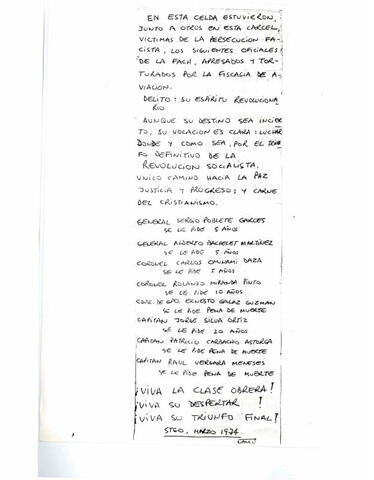 EN ESTA CELDA ESTUVIERON,
JUNTO A OTROS EN ESTA CARCEL,
VICTIMAS DE LA PERSECUCION FA-
CISTA, LOS SIGUIENTES OFICIALES
DE LA FACH, APRESADOS Y TOR-
TURADOS POR LA FISCALIA DE A-
VIACION.
DELITO: SU ESPÍRITU REVOLUCIONA
RIO
AUNQUE SU DESTINO SEA INCIER
TO, SU VOCACION ES CLARA: LUCHAR
DONDE Y COMO SEA, POR EL TRIUN
FO DEFINITIVO DE LA
REVOLUCION SOCIALISTA,
UNICO CAMINO HACIA LA PAZ
JUSTICIA Y PROGRESO; Y CARNE
DEL CRISTIANISMO.
GENERAL SERGIO POBLETE GARCES
SE LE PIDE 5 AÑOS
GENERAL ALBERTO BACHELET MARTÍNEZ
SE LE PIDE 5 AÑOS
CORONEL CARLOS OMINAMI DAZA
SE LE PIDE 5 AÑOS
CORONEL ROLANDO MIRANDA PINTO
SE LE PIDE 10 AÑOS
CDTE. DE GPO. ERNESTO GALAZ GUZMAN
SE LE PIDE PENA DE MUERTE
CAPITAN JORGE SILVA ORTIZ
SE LE PIDE 20 AÑOS
CAPITAN PATRICIO CARBACHO ASTORGA
SE LE PIDE PENA DE MUERTE
CAPITAN RAUL VERGARA MENESES
SE LE PIDE PENA DE MUERTE
¡VIVA LA CLASE OBRERA!
¡VIVA SU DESPERTAR !
¡VIVA SU TRIUNFO FINAL!
STGO, MARZO 1974